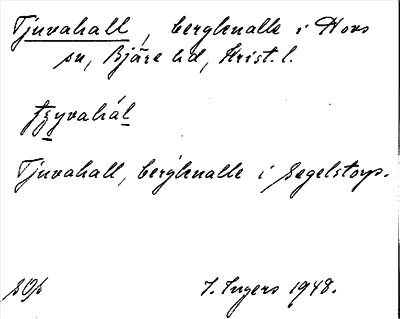 Tjuvahall, bergknalle i Hovs
sn, Bjäre hd, Krist. l.
tʒyvahál
Tjuvahall, bergknalle i Segelstorp.
I. Ingers 1948.